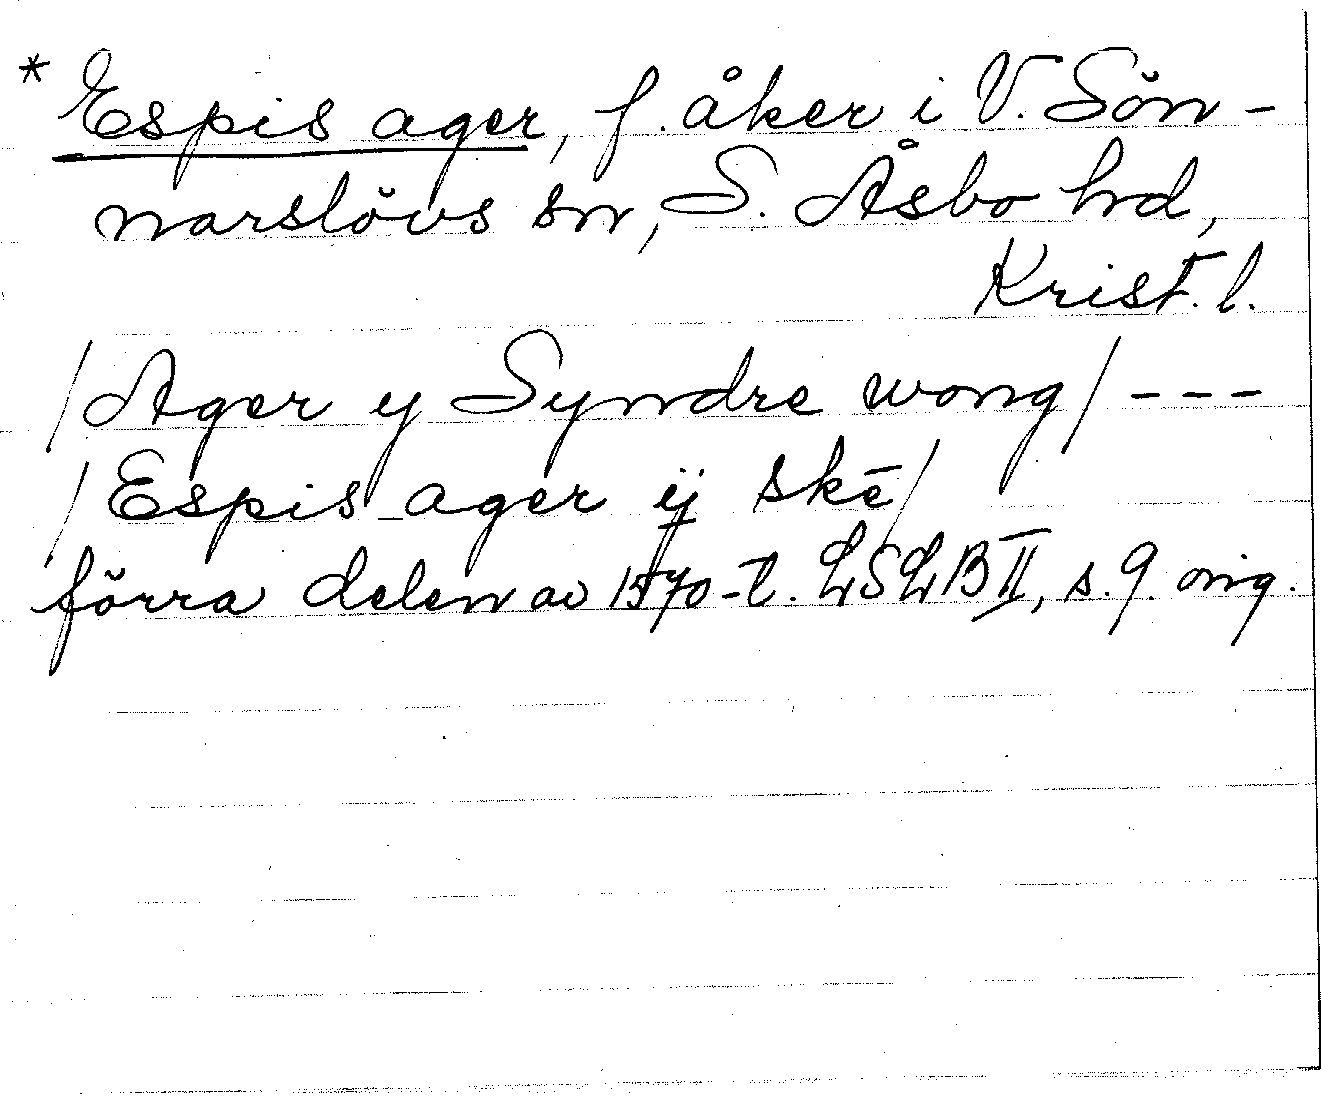 * Espis ager, f. åker i V. Sön-
narslövs sn, S. Åsbo hd,
Krist. l.
/Ager y Syndre wong/ ---
/Espis ager ij skē/
förra delen av 1570-t. LSLB II, s. 9. orig.